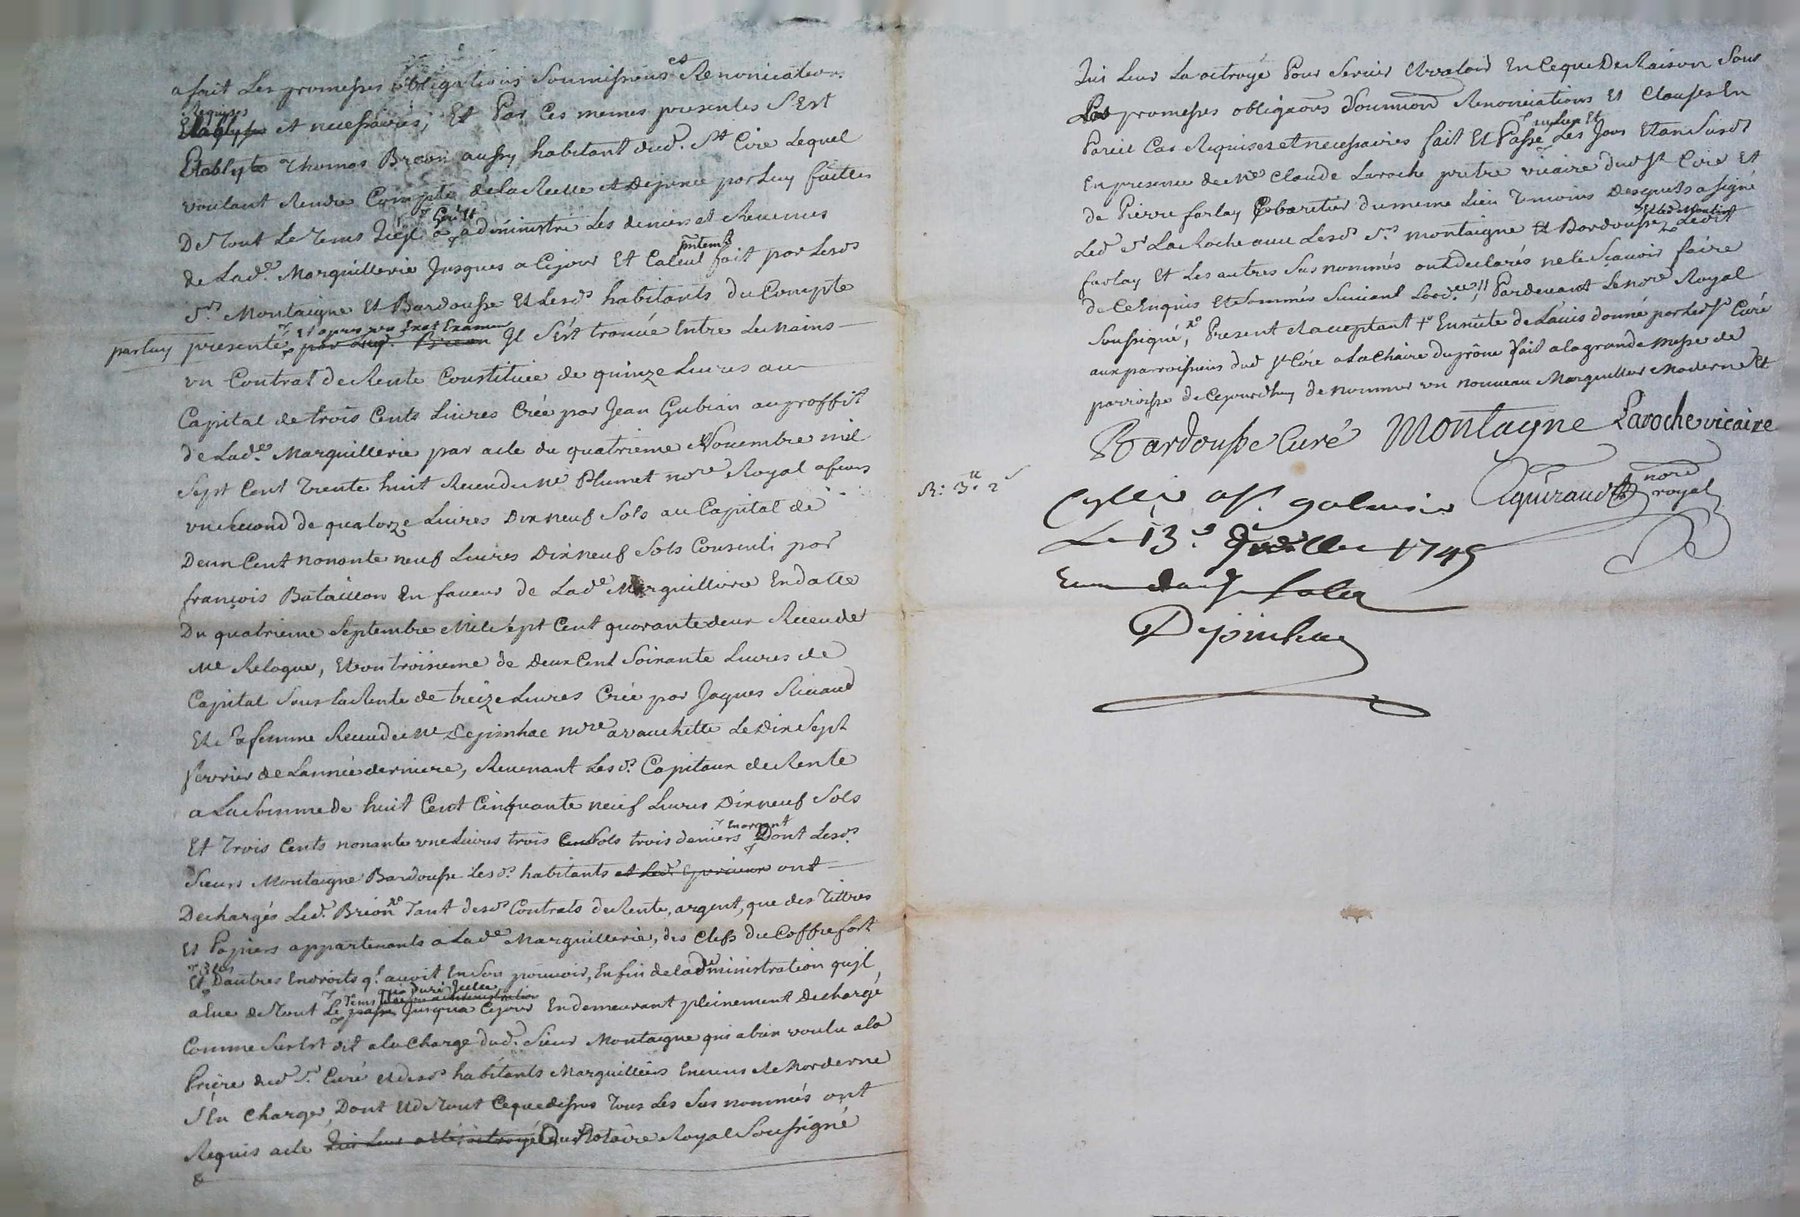 a fait Les promesses obligations Soumissions et Renonciations
Requises
et necessaires; Et Par Ces memes presentes S'Est
Etably Thomas Breon aussy habitant dud. St Cire Lequel
voulant Rendre Compte de la Recette et Depence par Luy faittes
De Tout Le Tems qu'il a géré et administré Les deniers et Revenus
de Lad.e Marguillerie Jusques a Cejour Et Calcul fait par Lesd.s
Srs Montaigne Et Bardousse Et Lesd.s habitants du Compte
par luy presenté Et apres un Exat Examen Il S'est trouvée Entre Les mains
un Contrat de Rente Constituée de quinze Livres au
Capital de trois Cents Livres Crée par Jean Gubian au proffit
de Lad.e Marguillerie par acte du quatrieme Novembre mil
Sept Cent Trente huit Receu de Me Plumet nore Royal
un Second de quatorze Livres Dix neuf Sols au Capital de
Deux Cent nonante neuf Livres Dix neuf Sols Consenti par
françois Bataillon En faveur de Lad.e Marguillerie En datte
Du quatrieme Septembre Mil Sept Cent quarante deux Receu de
Me Relogue, Et un troisieme de Deux Cent Soixante Livres de
Capital Sous La Rente de treize Livres Crée par Jaques
Et Sa femme Receu de Me Depinhac nore a vauchette Le Dix Sept
fevrier de L'année derniere, Revenant Lesd. Capitaux de Rente
a La Somme de huit Cent Cinquante neuf Livres Dix neuf Sols
Et Trois Cents nonante une Livres trois Sols trois deniers En argent Dont Lesd.s
Sieurs Montaigne Bardousse Lesd.s habitants ont
Dechargés Led. Breon Tant desd.s Contrats de Rente, argent, que des Tittres
Et Papiers appartenants a Lad.e Marguillerie, des Clefs du Coffre fort
Et D'autres Endroits q'l avoit En Son pouvoir, Enfin de l'administration qu'il
a Eue de Tout Le Tems Jusqua Cejour En demeurant pleinement Dechargé
Comme Sus Est dit a la Charge dud. Sieur Montaigne qui a bien voulu a la
Priere dud. Sr Curé et desd.s habitants Marguilliers
S'En Charger, Dont Et de Tout Ceque dessus Tous Les Sus nommés ont
Requis acte Du Notaire Royal Soussigné
&
Qui Leur La octroyé Pour Servir Et valoir En Ceque De Raison Sous
Les promesses obligaons Soumions Renonciations Et Clauses En
Pareil Cas Requises et necessaires fait Et Passé Les Jour Et an Susd.s
En presence de Me Claude Laroche prêtre vicaire dud. St Cire Et
de Pierre farlay Cabaretier du meme Lieu Temoins Desquels a Signé
Led. Sr La Roche avec Lesd. Srs Montaigne Et Bardousse Ledit
farlay Et Les autres Sus nommés ont declarés ne le Scavoir faire
de Ce Enquis Et Sommés Suivant Lord.ce // Pardevant Le nore Royal
Soussigné, Present Et acceptant Ensuite de L'avis donné par Led. Sr Curé
aux parroissiens dud. St Cire a La Chaire du prône fait a la grande messe de
parroisse de Cejourdhuy de nommer un nouveau Marguillier Moderne
Bardousse Curé Montagne Laroche vicaire
R: 3lt 2s
nore
royal
Le 13e 1745
Depinhac